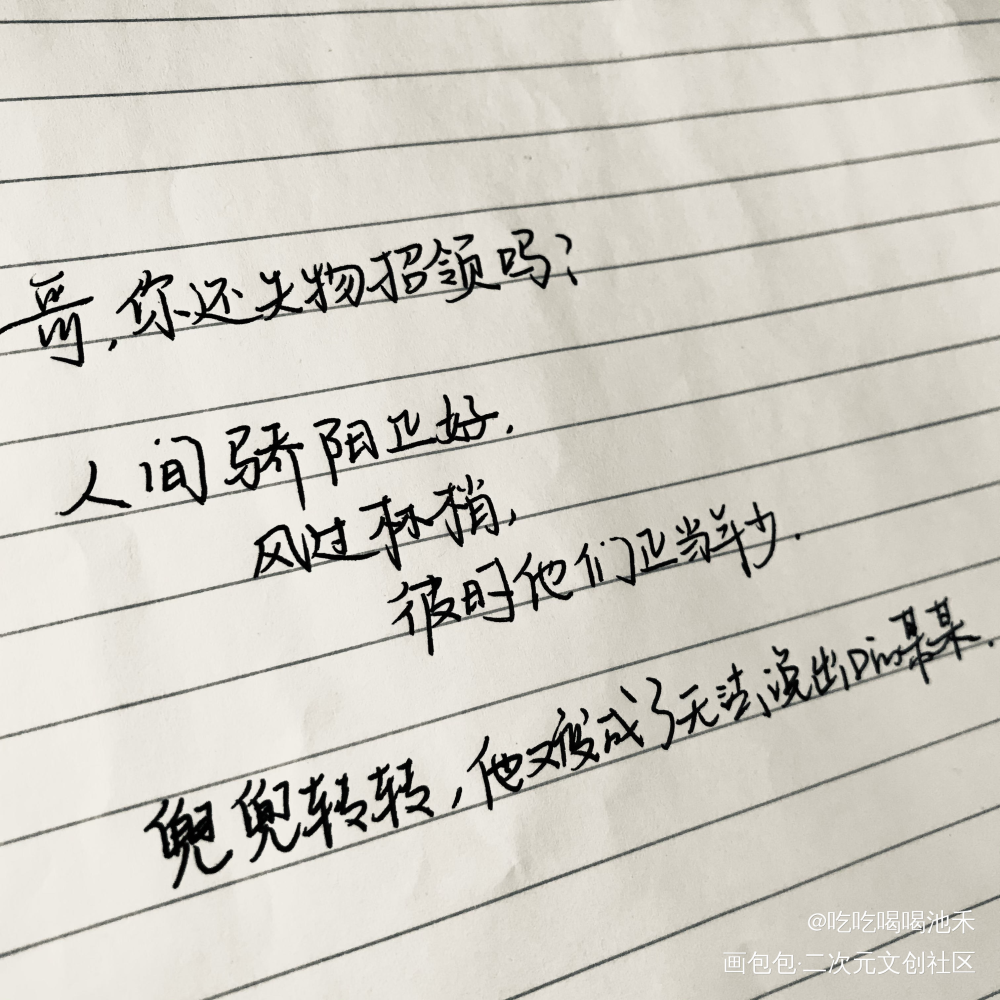 哥,你还失物招领吗?
人间骄阳正好.
风过林梢,
彼时他们正当年少.
兜兜转转,他又变成了无法说出口的某某.
@吃吃喝喝池禾
画包包·二次元文创社区